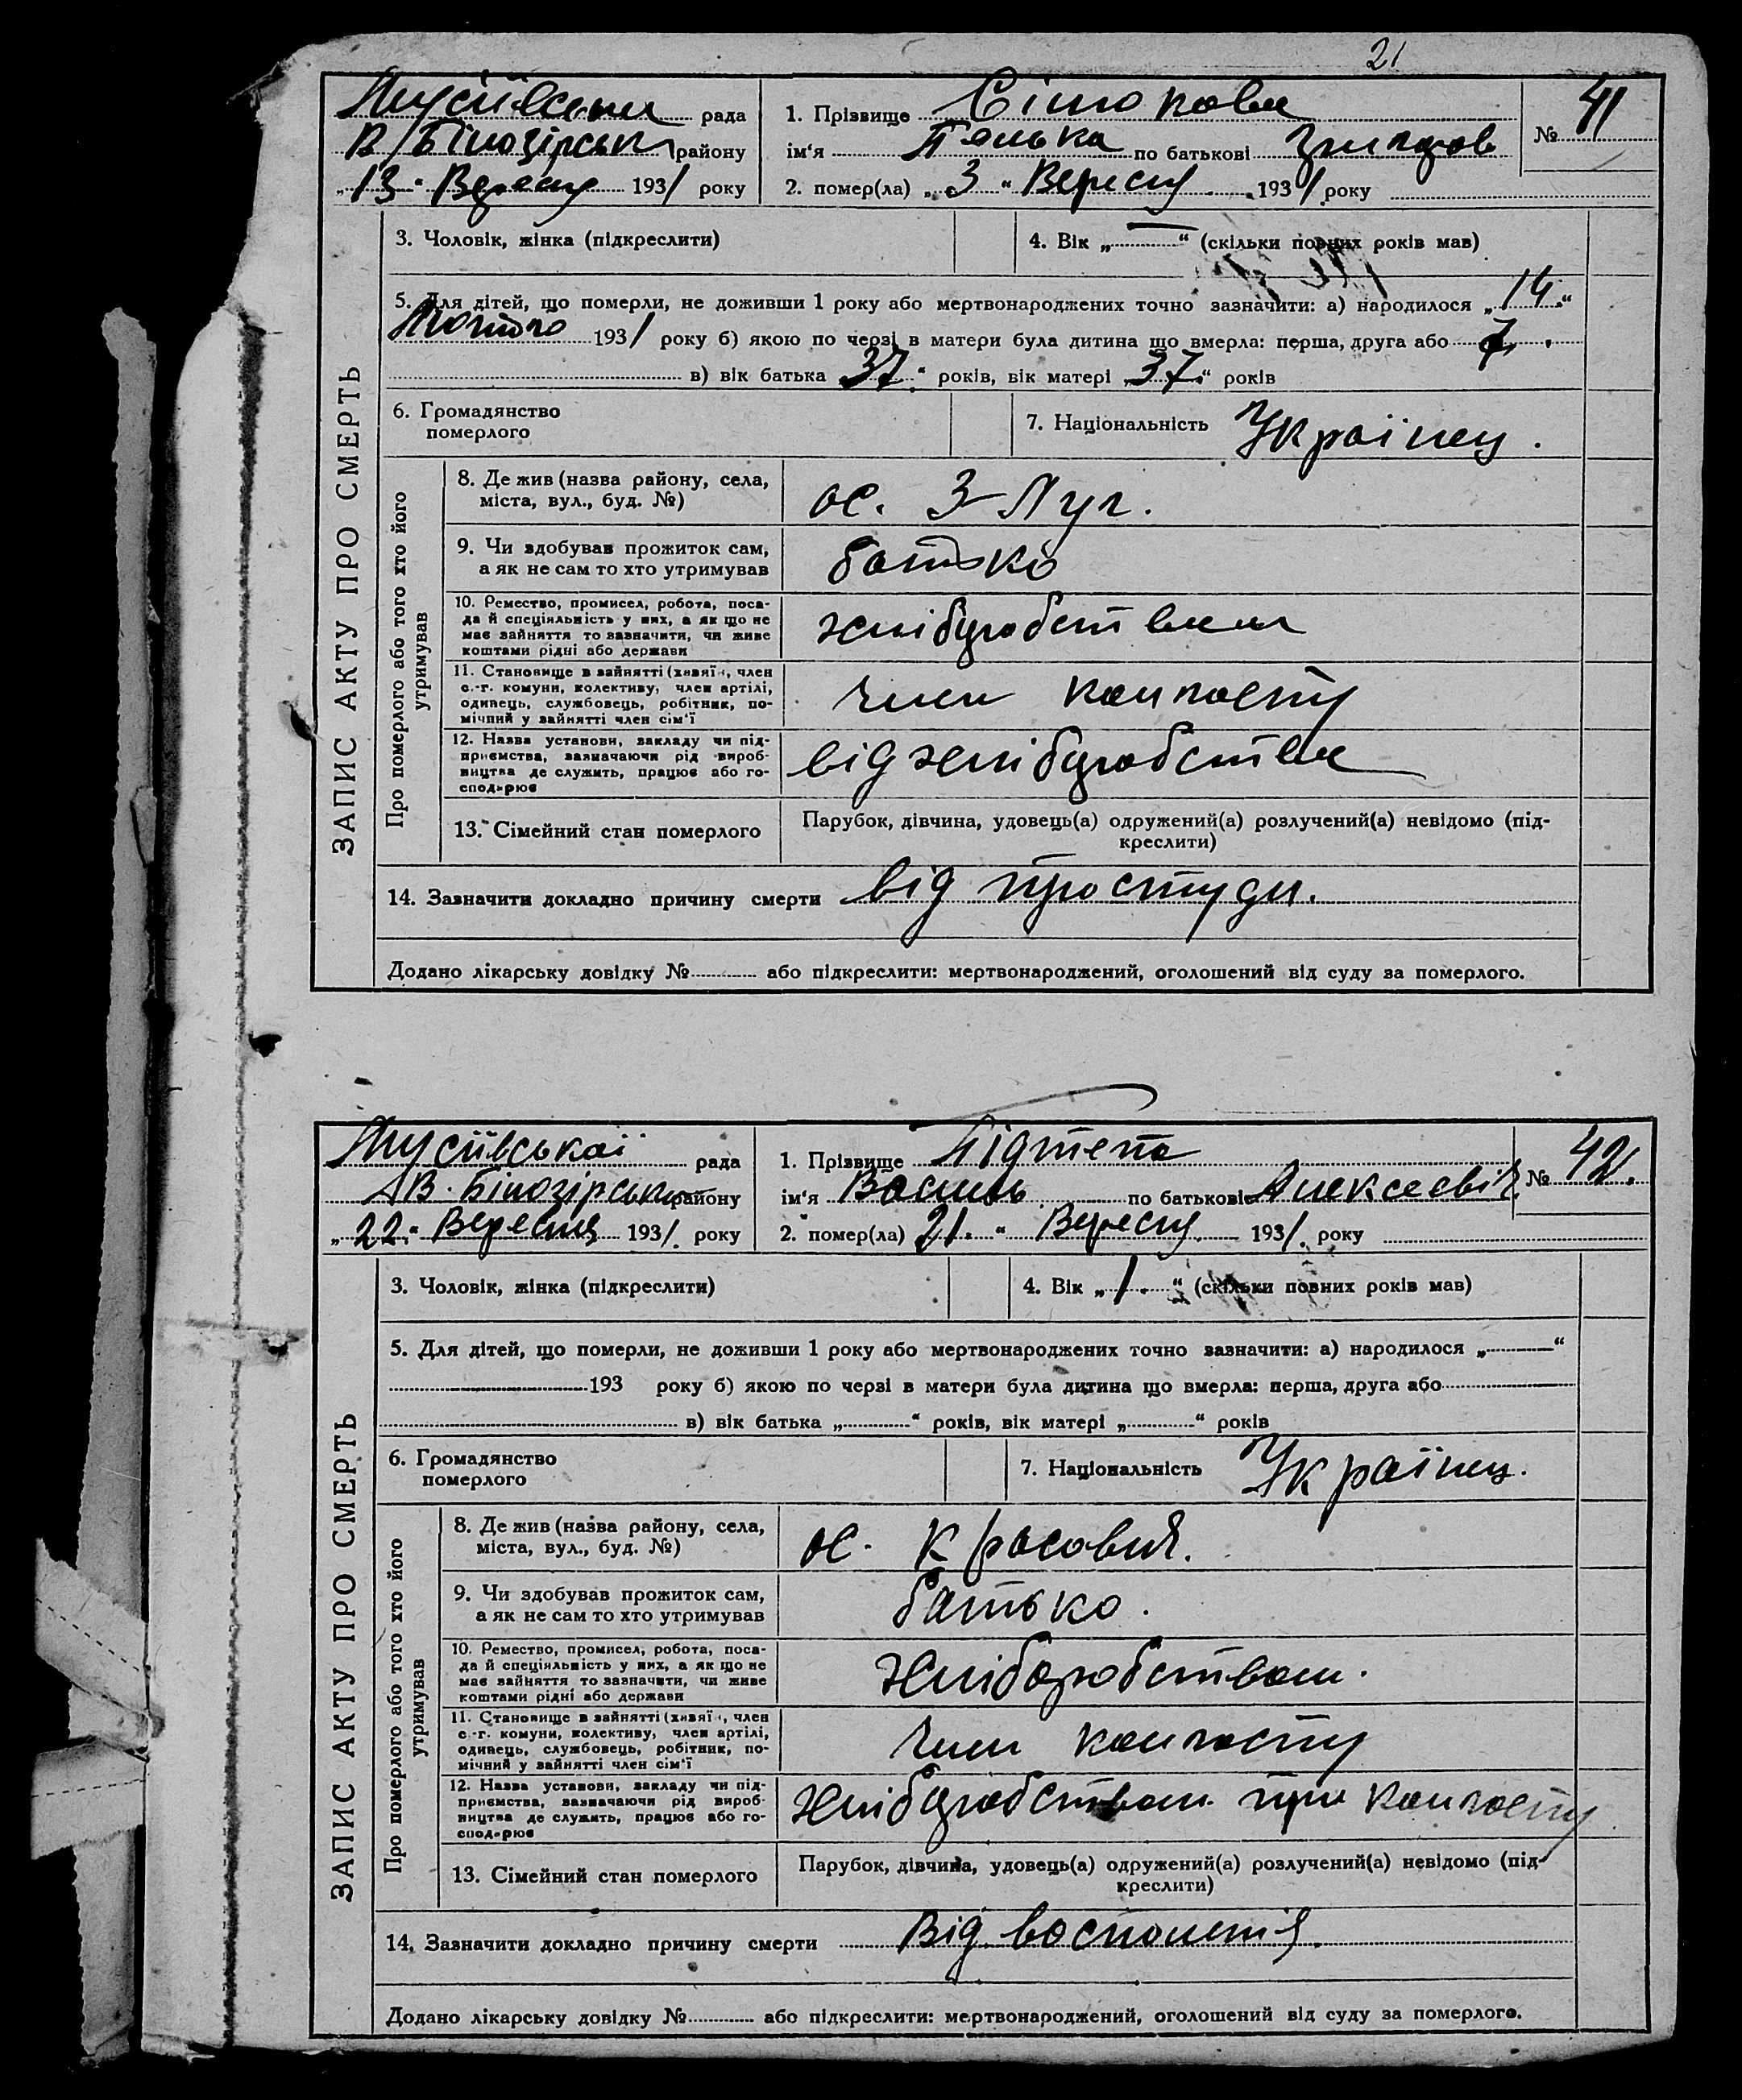 21
рада
В/Білозірськ району
„13“ Вересу 1931 року
1. Прізвище
ім'я Полька по батькові
2. помер(ла) „3“ Вересу 1931 року
№ 41
ЗАПИС АКТУ ПРО СМЕРТЬ
3. Чоловік, жінка (підкреслити)
4. Вік „—“ (скільки повних років мав)
5. Для дітей, що померли, не доживши 1 року або мертвонароджених точно зазначити: а) народилося „14“
Лютого 1931 року б) якою по черзі в матери була дитина що вмерла: перша, друга або 7.
в) вік батька „37“ років, вік матері „37“ років
6. Громадянство
померлого
7. Національність Українец.
Про померлого або того хто його
утримував
8. Де жив (назва району, села,
міста, вул., буд. №)
ос. 3 Луч.
9. Чи здобував прожиток сам,
а як не сам то хто утримував
батько
10. Ремество, промисел, робота, поса-
да й спеціяльність у них, а як що не
має зайняття то зазначити, чи живе
коштами рідні або держави
хлібуробством
11. Становище в зайнятті (хазяїн, член
с.-г. комуни, колективу, член артілі,
одинець, службовець, робітник, по-
мічний у зайнятті член сім'ї
член колгоспу
12. Назва установи, закладу чи під-
приємства, зазначаючи рід вироб-
ництва де служить, працює або го-
сподарює
від хлібуробства
13. Сімейний стан померлого
Парубок, дівчина, удовець(а) одружений(а) розлучений(а) невідомо (під-
креслити)
14. Зазначити докладно причину смерти від простуди.
Додано лікарську довідку № або підкреслити: мертвонароджений, оголошений від суду за померлого.
Мусіївської рада
В. Білозірськ району
„22“ Вересня 1931. року
1. Прізвище Підтепа
ім'я Василь по батькові Алексеєвіч.
2. помер(ла) „21.“ Вересу 1931. року
№ 42.
ЗАПИС АКТУ ПРО СМЕРТЬ
3. Чоловік, жінка (підкреслити)
4. Вік „1.“ (скільки повних років мав)
5. Для дітей, що померли, не доживши 1 року або мертвонароджених точно зазначити: а) народилося „ “
193 року б) якою по черзі в матери була дитина що вмерла: перша, друга або
в) вік батька „ “ років, вік матері „ “ років
6. Громадянство
померлого
7. Національність Українец.
Про померлого або того хто його
утримував
8. Де жив (назва району, села,
міста, вул., буд. №)
ос.
9. Чи здобував прожиток сам,
а як не сам то хто утримував
батько.
10. Ремество, промисел, робота, поса-
да й спеціяльність у них, а як що не
має зайняття то зазначити, чи живе
коштами рідні або держави
Хліборобством.
11. Становище в зайнятті (хазяїн, член
с.-г. комуни, колективу, член артілі,
одинець, службовець, робітник, по-
мічний у зайнятті член сім'ї
член колгоспу
12. Назва установи, закладу чи під-
приємства, зазначаючи рід вироб-
ництва де служить, працює або го-
сподарює
хлібуробством при колгоспу
13. Сімейний стан померлого
Парубок, дівчина, удовець(а) одружений(а) розлучений(а) невідомо (під-
креслити)
14. Зазначити докладно причину смерти Від восполенія.
Додано лікарську довідку № або підкреслити: мертвонароджений, оголошений від суду за померлого.